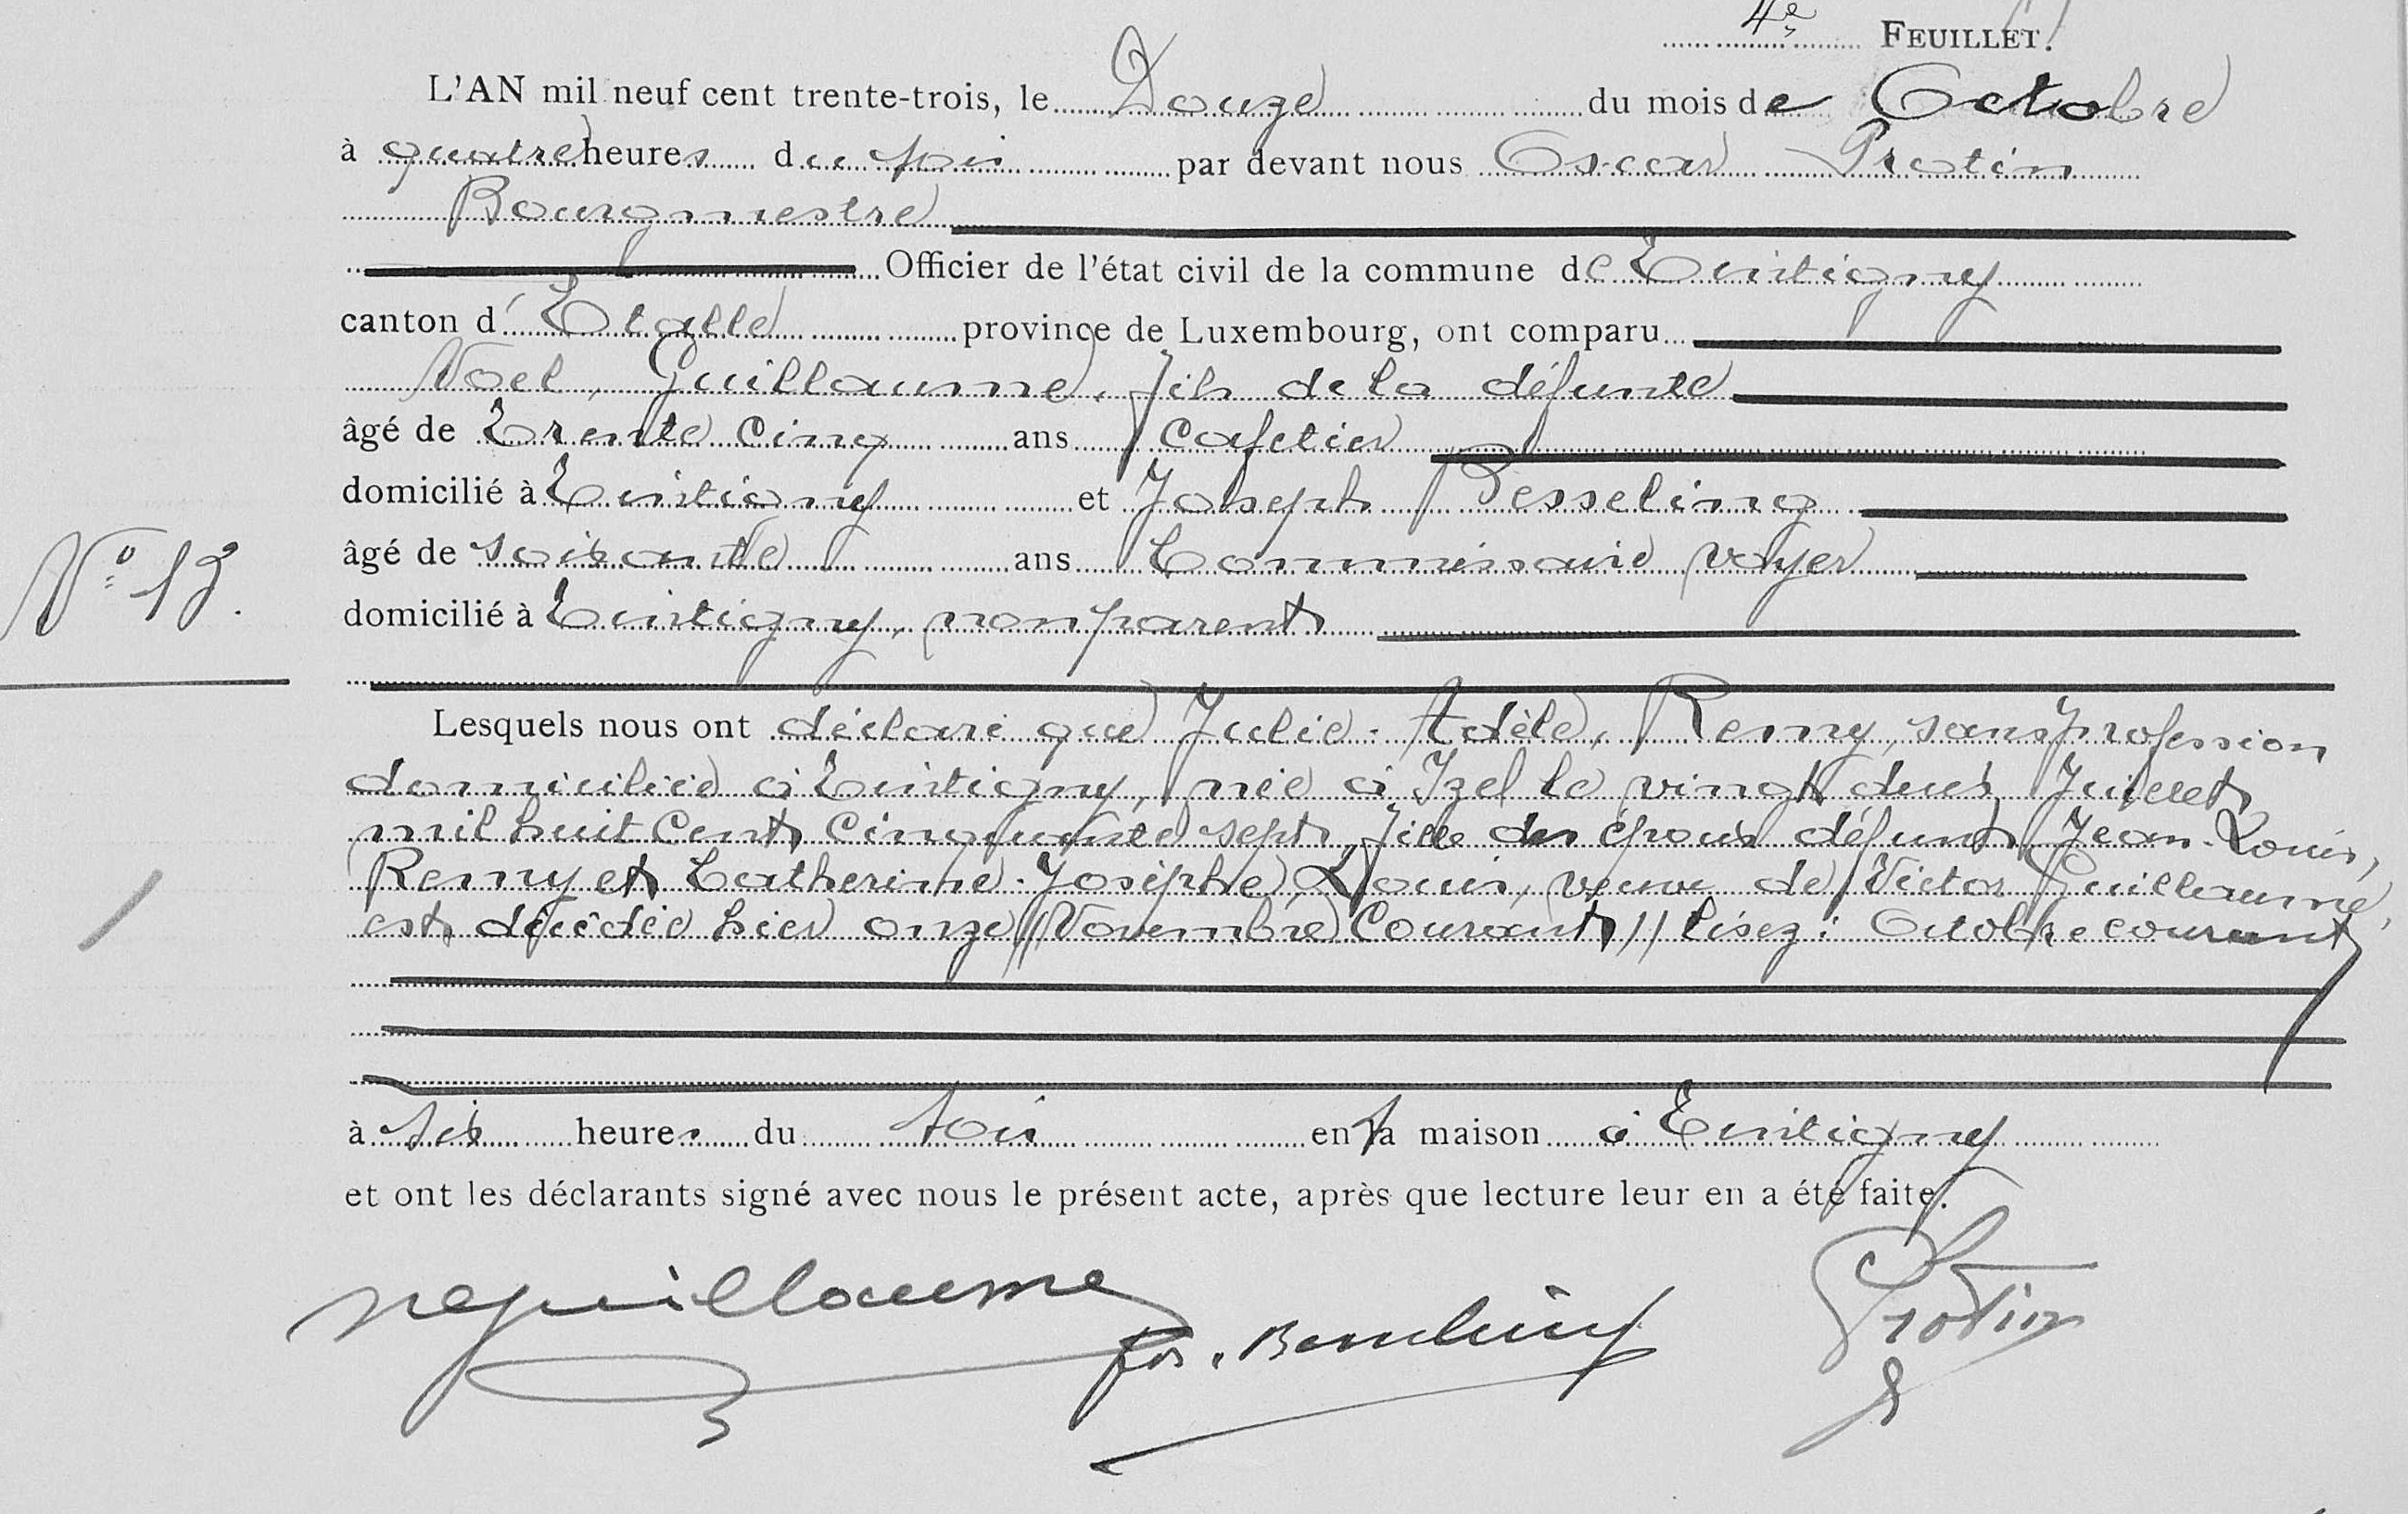 4e FEUILLET.
L'AN mil neuf cent trente-trois, le Douze du mois de Octobre
à quatre heures du soir par devant nous Oscar Protin
Bourgmestre
Officier de l'état civil de la commune de Tintigny
canton d'Etalle province de Luxembourg, ont comparu
Noel, Guillaume, fils de la défunte
âgé de Trente cinq ans Cafetier
domicilié à Tintigny et Joseph Besseling
âgé de soixante ans Commissaire voyer
N° 13.
domicilié à Tintigny, non parent
Lesquels nous ont déclaré que Julie-Adèle, Remy, sans profession
domiciliée à Tintigny, née à Izel le vingt deux Juillet
mil huit Cent Cinquante sept, fille des époux défunts Jean-Louis,
Remy et Catherine-Josèphe, Louis, veuve de Victor Guillaume,
est décédée hier onze //Novembre Courant// lisez: Octobre courant
à six heures du soir en sa maison à Tintigny
et ont les déclarants signé avec nous le présent acte, après que lecture leur en a été faite.
NGuillaume
Jos. Besseling
Protin